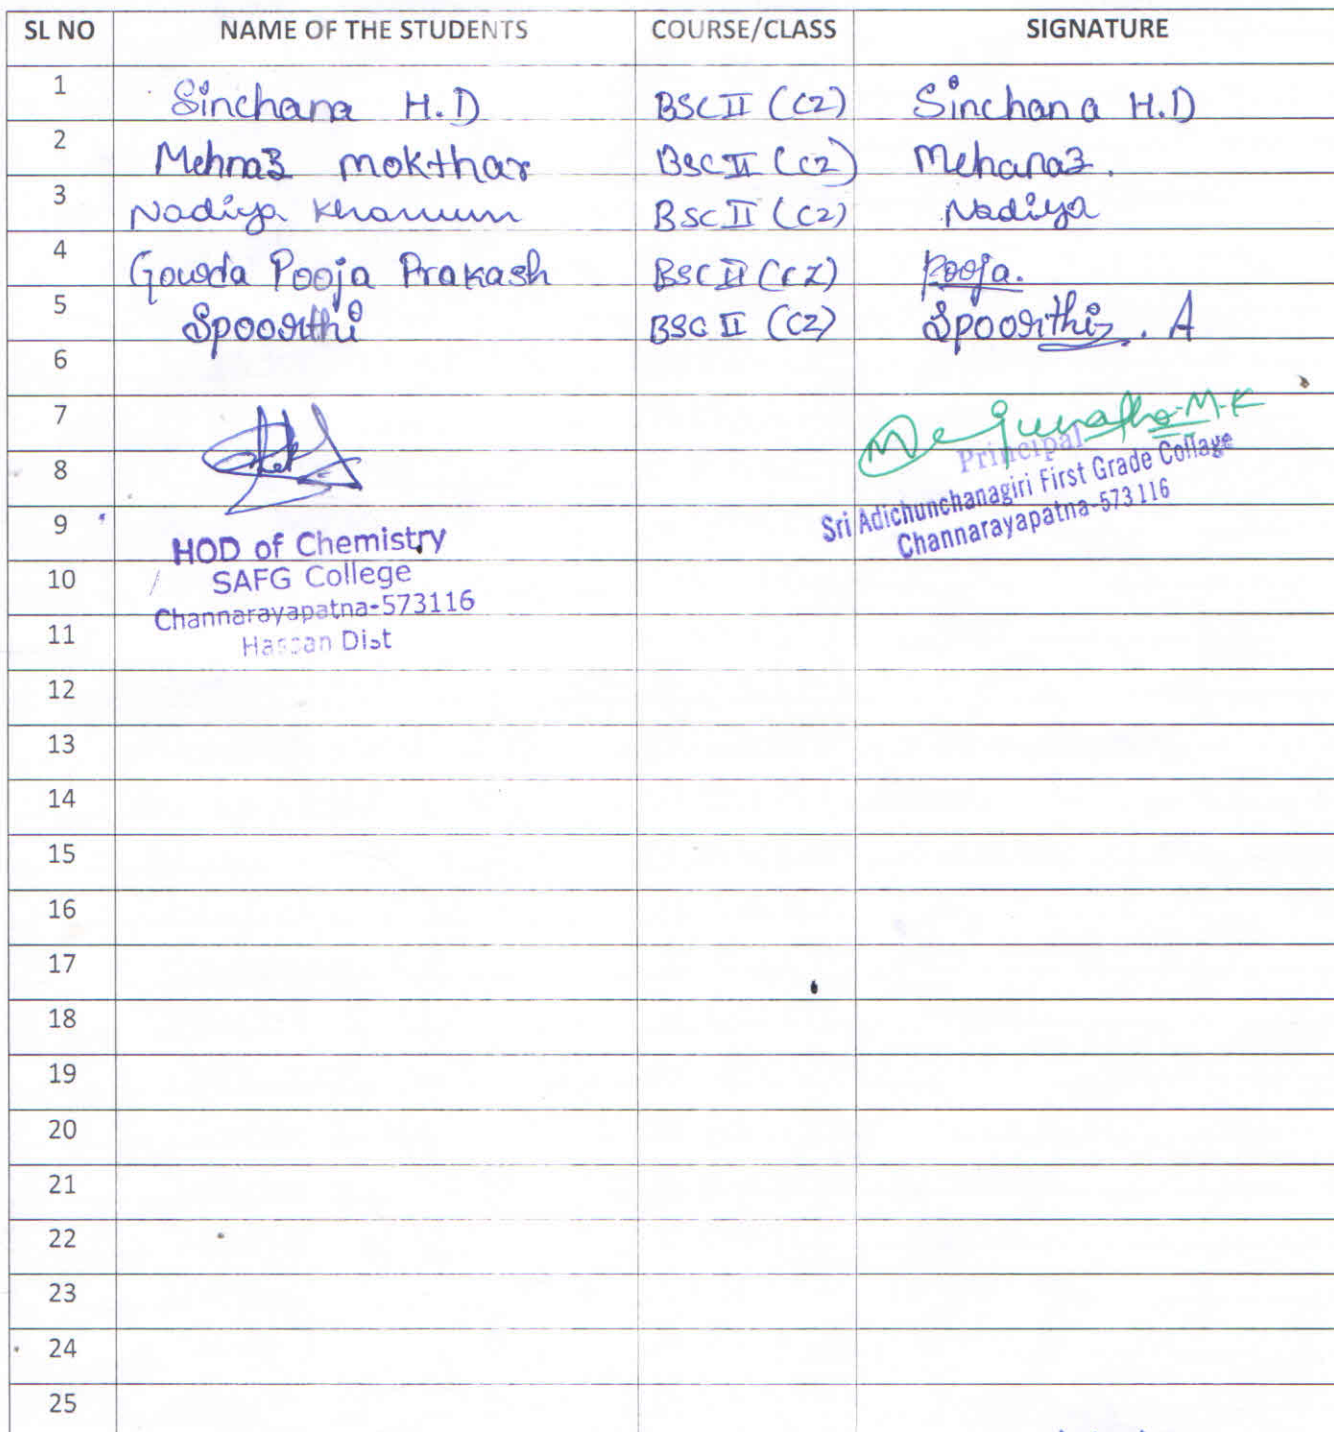 SL NO NAME OF THE STUDENTS COURSE/CLASS SIGNATURE
1 Sinchana H.D BSC II (CZ) Sinchana H.D
2 Mehnaz mokthar BSC II (CZ) Mehanaz.
3 Nadiya Khanum BSC II (CZ) Nadiya
4 Gowda Pooja Prakash BSC II (CZ) Pooja.
5 Spoorthi BSC II (CZ) Spoorthi . A
6
7
8
9
10
11
M.K
Principal
Sri Adichunchanagiri First Grade Collage
Channarayapatna-573116
HOD of Chemistry
SAFG College
Channarayapatna-573116
Hassan Dist
12
13
14
15
16
17
18
19
20
21
22
23
24
25